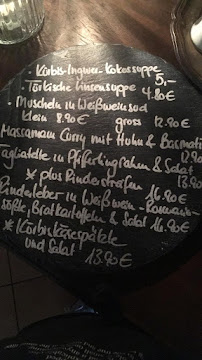 · Kürbis-Ingwer-Kokossuppe
5,-
· Türkische Linsensuppe
4.80€
· Muscheln in Weißweinsud
klein 8.90€ gross 12.90€
Massamam Curry mit Huhn & Basmati
12.90€
Tagliatelle in Pfifferlingrahm & Salat
* plus Rinderstreifen 13.90€
16.90€
Rinderleber in Weißwein-Rosmarin-
soße, Bratkartoffeln & Salat 14.90€
* Kürbiskäsespätzle
und Salat 13.90€